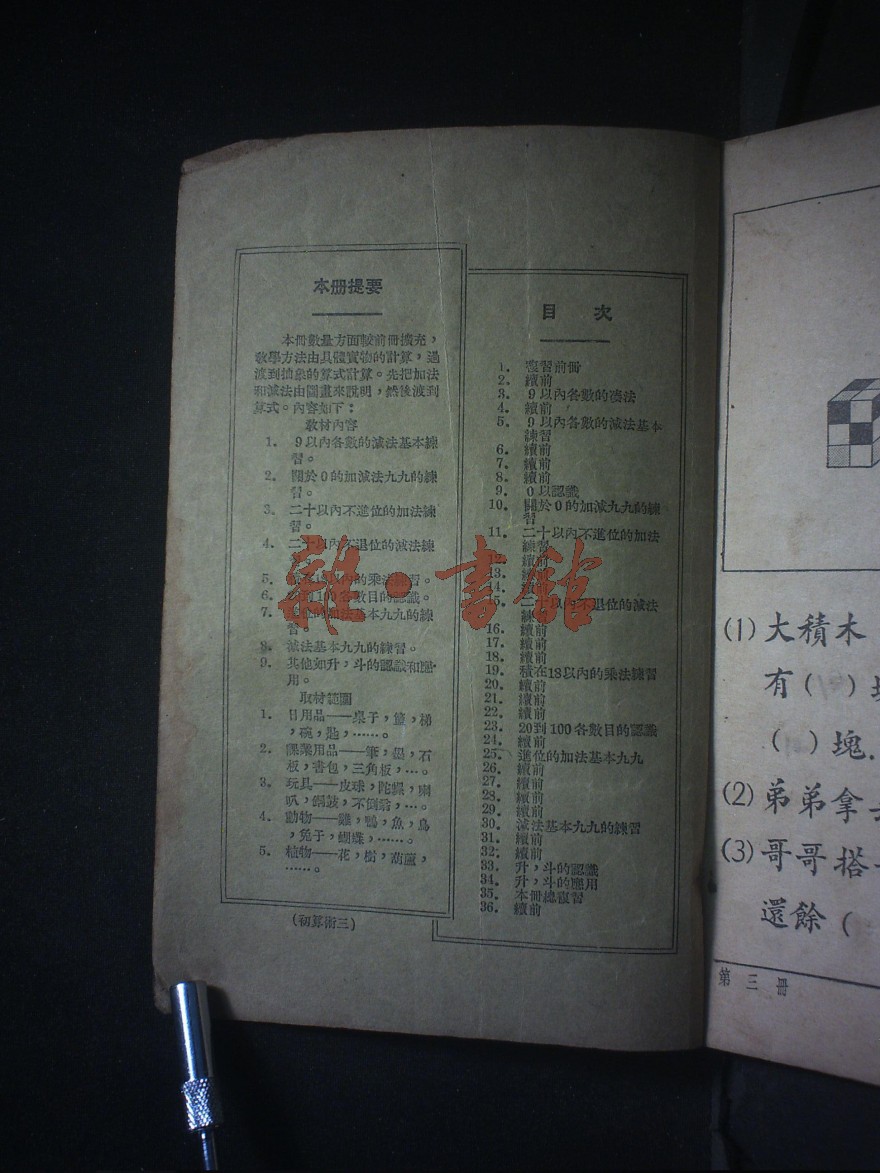 本冊提要
本冊數量方面較前冊擴充，
教學方法由具體實物的計算，過
渡到抽象的算式計算。先把加法
和減法由圖畫來說明，然後渡到
算式。內容如下：
教材內容
1. 9以內各數的減法基本練
習。
2. 關於0的加減法九九的練
習。
3. 二十以內不進位的加法練
習。
4. 二十以內不退位的減法練
5. 以內的乘法練習。
6. 到100各數目的認識。
7. 位的加法基本九九的練
習。
8. 減法基本九九的練習。
9. 其他如升，斗的認識和應
用。
取材範圍
1. 日用品——桌子，籃，梯
，碗，匙，……。
2. 課業用品——筆，墨，石
板，書包，三角板，…。
3. 玩具——皮球，陀螺，喇
叭，銅鼓，不倒翁，…。
4. 動物——雞，鴨，魚，鳥
，兔子，蝴蝶，……。
5. 植物——花，樹，葫蘆，
……。
(初算術三)
目 次
1. 複習前冊
2. 續前
3. 9以內各數的湊法
4. 續前
5. 9以內各數的減法基本
練習
6. 續前
7. 續前
8. 續前
9. 0以認識
10. 關於0的加減九九的練
習
11. 二十以內不進位的加法
練習
12. 續前
13. 續前
14. 續前
15. 二十以內不退位的減法
練習
16. 續前
17. 續前
18. 續前
19. 積在18以內的乘法練習
20. 續前
21. 續前
22. 續前
23. 20到100各數目的認識
24. 續前
25. 進位的加法基本九九
26. 續前
27. 續前
28. 續前
29. 續前
30. 減法基本九九的練習
31. 續前
32. 續前
33. 升，斗的認識
34. 升，斗的應用
35. 本冊總複習
36. 續前
雜·書館
(1)大積木
有( )塊
( )塊.
(2)弟弟拿去
(3)哥哥搭
還餘(
第三冊